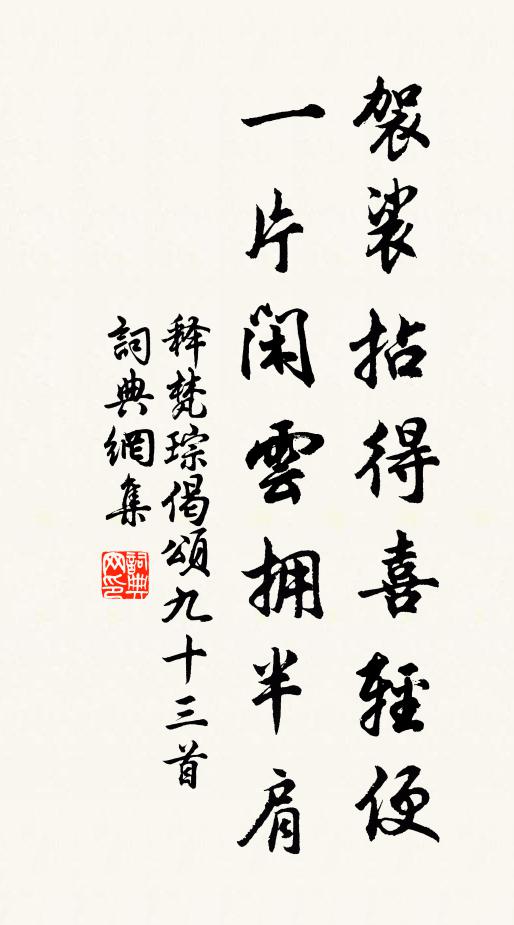 袈裟拈得喜輕便
一片閑雲拥半肩
释梵琮偈頌九十三首
詞典網集
詞典网印